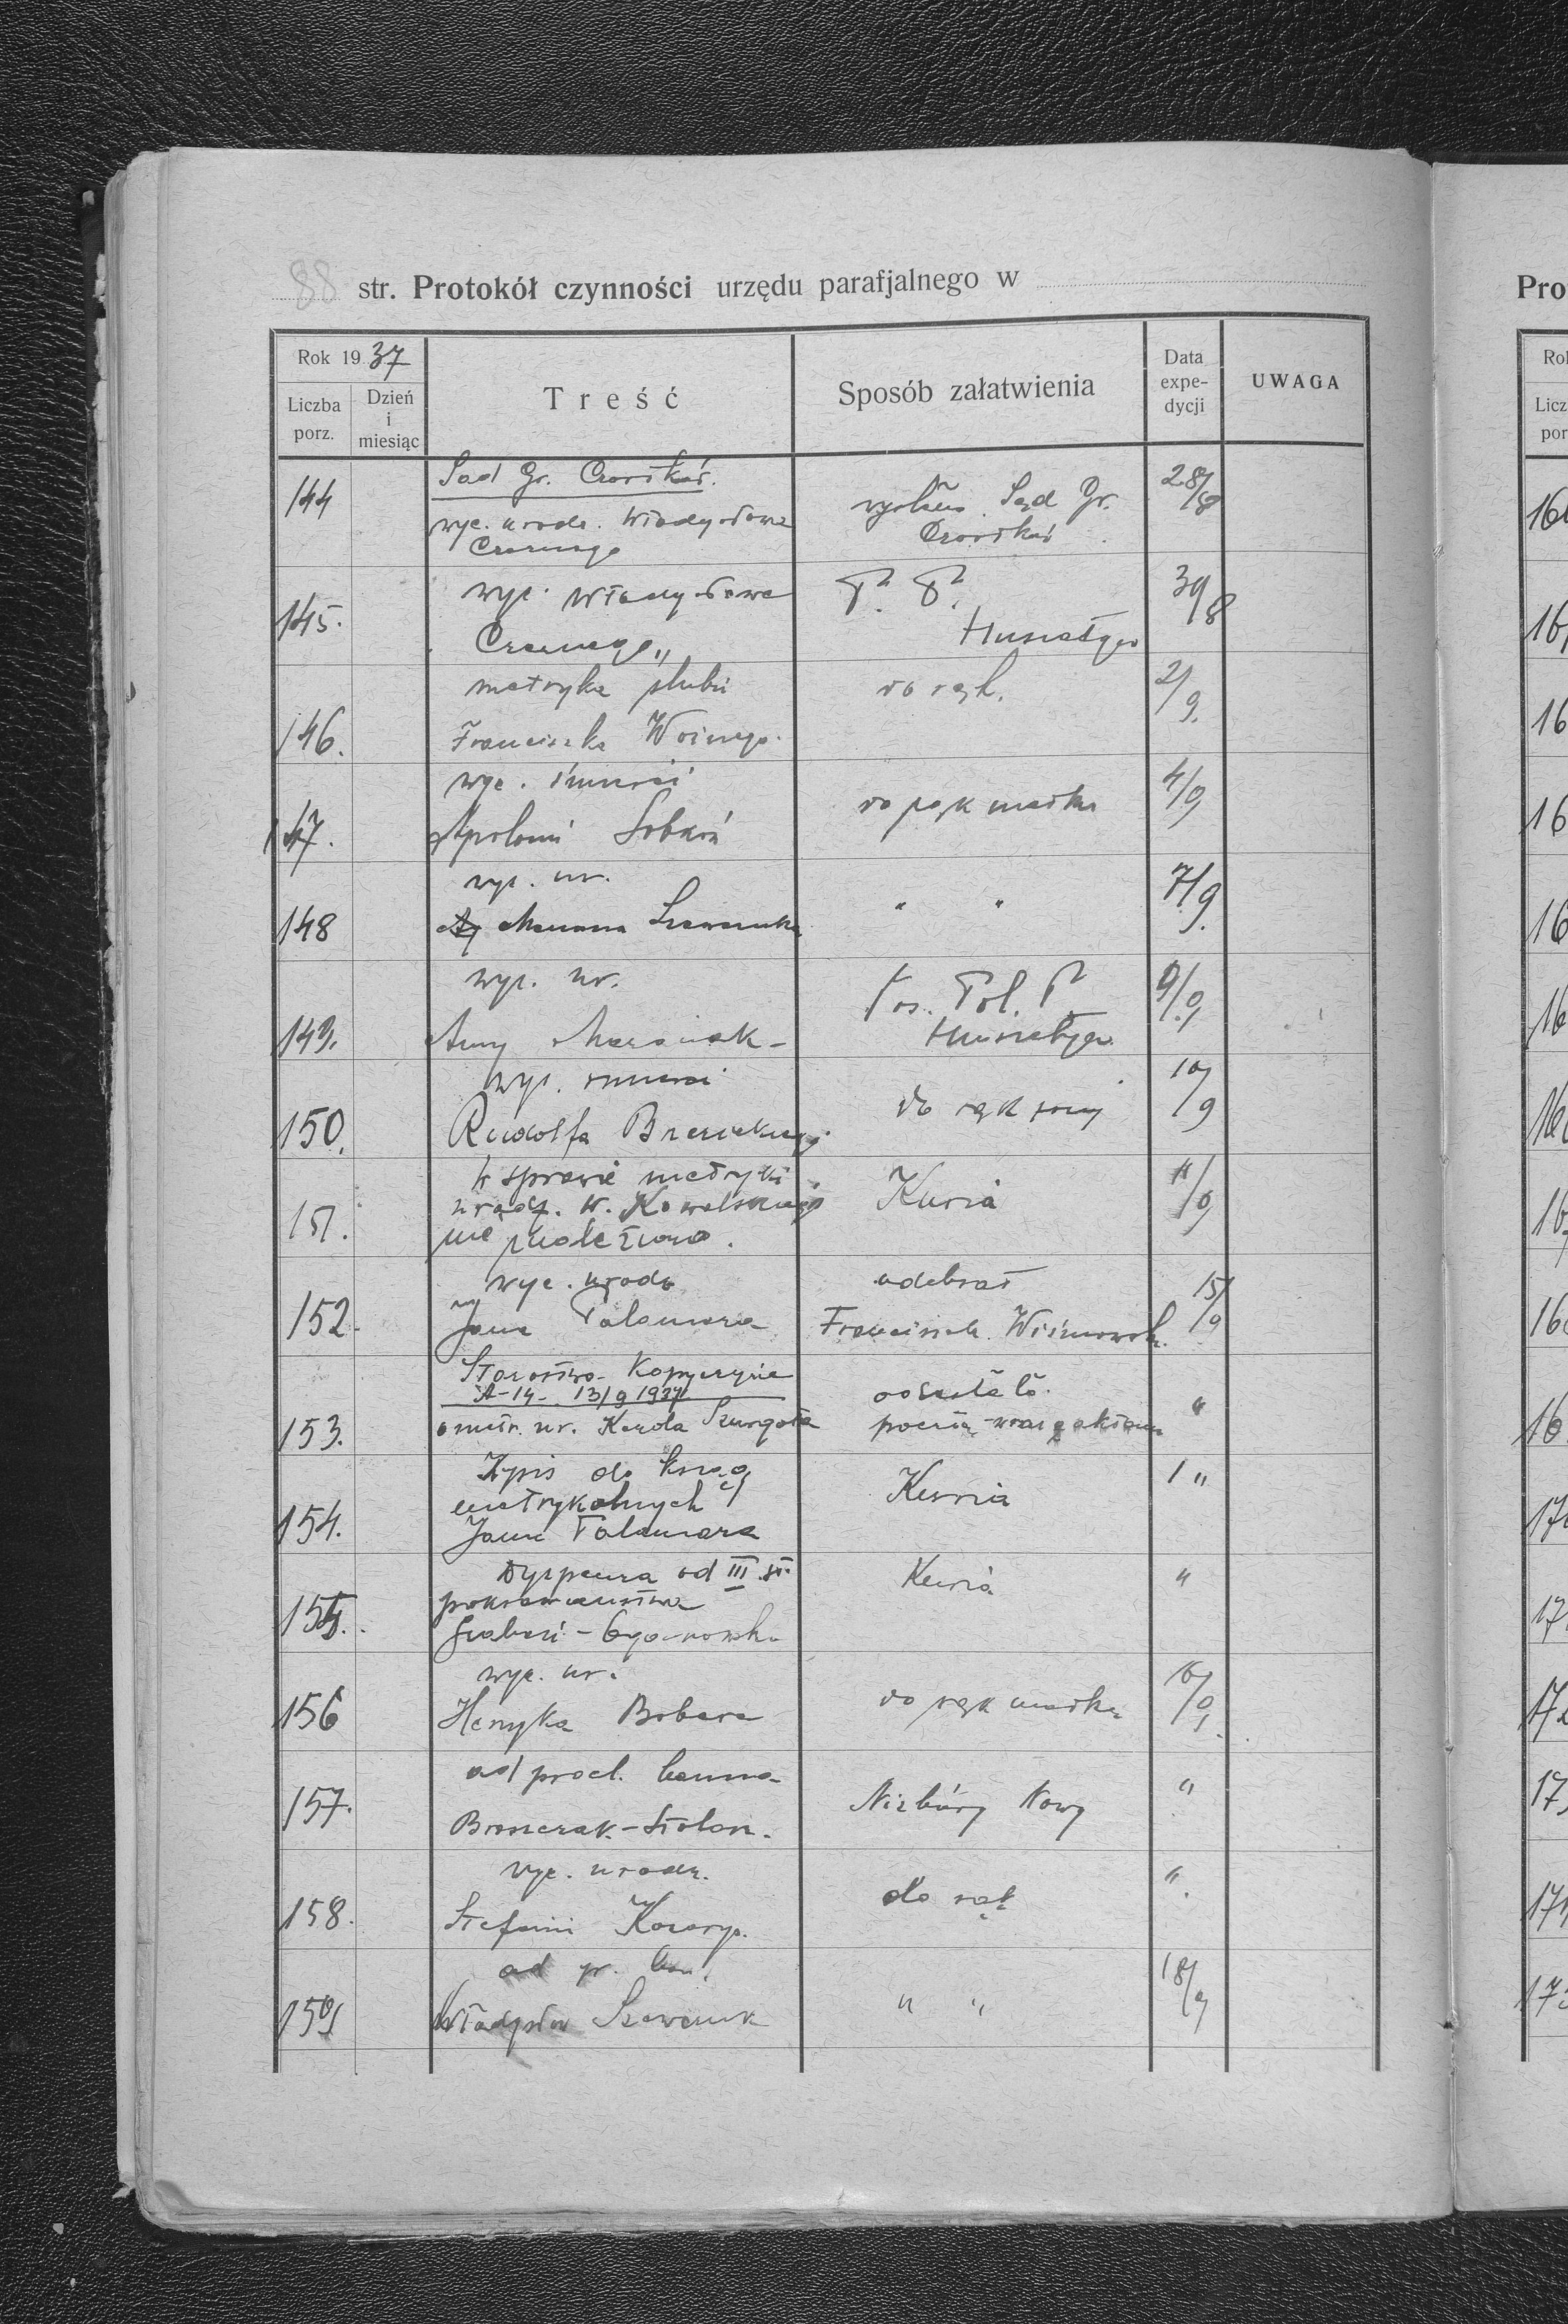 88 str. Protokół czynności urzędu parafjalnego w
Rok 19 37
Liczba porz.
Dzień i miesiąc
Treść
Sposób załatwienia
Data expe-dycji
UWAGA
144
Sąd Gr. Czortków.
wyc. urodz. Władysława
Czarnego
Sąd Gr.
Czortków
28/8
145.
wyc. Władysława
Czarnego"
P. P.
Husiatyn
30/8
146.
metryka ślubu
Franciszka Woźnego.
do rąk.
2/9.
147.
wyc. śmierci
Apolonii Soboń
do rąk matki
4/9
148
wyc. ur.
Mariana Szewczuka
" "
7/9.
149.
wyc. ur.
Anny Marciniak
Pos. Pol. P.
Husiatyn.
9/9
150.
wyc. śmierci
Rudolfa
do rąk żony
10/9
151.
W sprawie metryki
urodz. W. Kowalskiego
nie znaleziono.
Kuria
11/9
152.
wyc. urodz
Jana Palamara
odebrał
Franciszek Wiśniowski.
15/9
153.
Starostwo - Kopyczyńce
A-14 - 13/9 1937
o metr. ur. Karola Szurgota
odesłało
pocztą wraz z aktami
"
154.
Wpis do ksiąg
metrykalnych
Jana Palamara
Kuria
1 "
155.
Dyspensa od III st.
pokrewieństwa
Kuria
"
156
wyc. ur.
Henryka Bobera
do rąk matki
16/9.
157.
ad procl. banna
Niżbórg Nowy
"
158.
wyc. urodz.
Stefanii
do rąk
".
159
ad pr. ban.
Władysław Szewczuk
" "
18/9
Pro